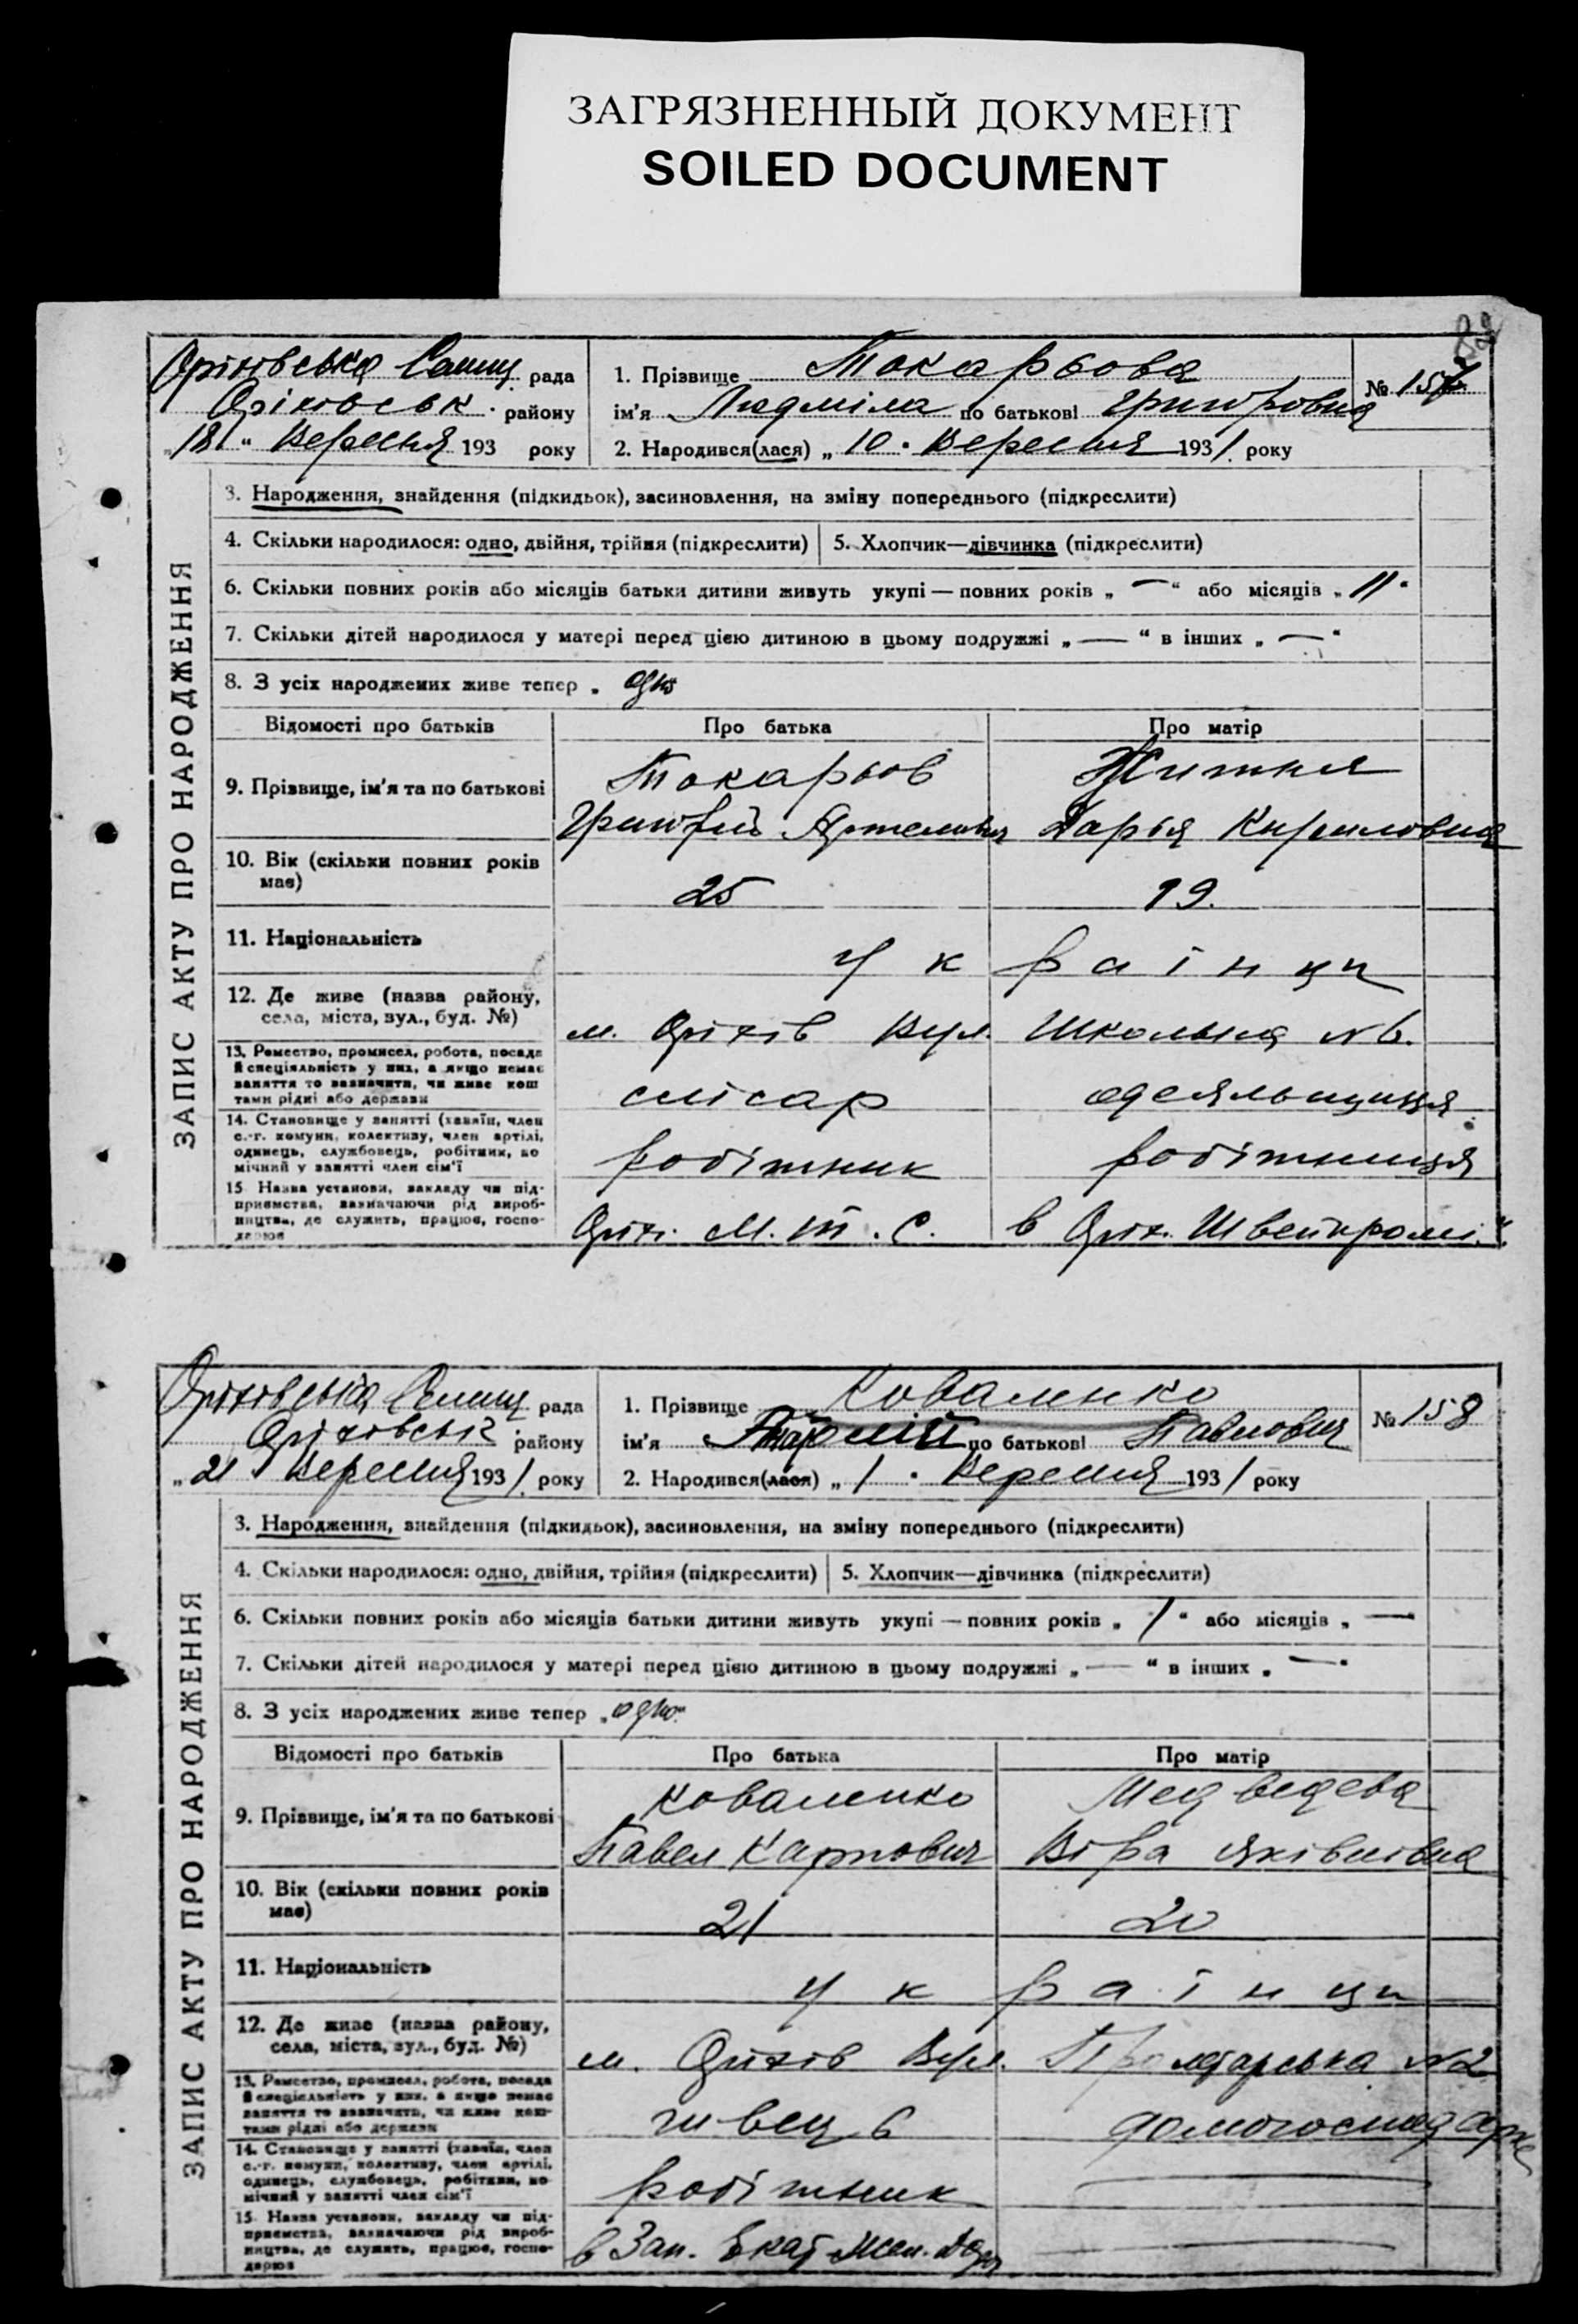 ЗАГРЯЗНЕННЫЙ ДОКУМЕНТ
SOILED DOCUMENT
82
Оріхівська Селищ. рада
Оріхівськ. району
„18" Вересня 193 року
1. Прізвище Токарьова
№ 157
ім'я Людміла по батькові Григоровна
2. Народився(лася) „10" Вересня 1931 року
ЗАПИС АКТУ ПРО НАРОДЖЕННЯ
3. Народження, знайдення (підкидьок), засиновлення, на зміну попереднього (підкреслити)
4. Скільки народилося: одно, двійня, трійня (підкреслити) 5. Хлопчик—дівчинка (підкреслити)
6. Скільки повних років або місяців батьки дитини живуть укупі — повних років „ — " або місяців „ 11 "
7. Скільки дітей народилося у матері перед цією дитиною в цьому подружжі „ — " в інших „ — "
8. З усіх народжених живе тепер „ одно
Відомості про батьків Про батька Про матір
9. Прізвище, ім'я та по батькові
Токарьов Житня
Григорій Артемович Дарья Кириловна
10. Вік (скільки повних років
має)
25 19.
11. Національність
Українци
12. Де живе (назва району,
села, міста, вул., буд. №)
м. Оріхів Вул. Школьна №6.
13. Ремество, промисел, робота, посада
й спеціяльність у них, а якщо немає
заняття то зазначити, чи живе кош
тами рідні або держави
слісар одеяльщиця
14. Становище у занятті (хазяїн, член
с.-г. комуни, колективу, член артілі,
одинець, службовець, робітник, по
мічний у занятті член сім'ї
робітник робітниця
15 Назва установи, закладу чи під-
приємства, зазначаючи рід вироб-
ництва, де служить, працює, госпо-
дарює
Оріх. М.Т.С. в Оріх. Швейпромі.
Оріхівська Селищ рада
Оріхівськ району
„21" Вересня 1931 року
1. Прізвище Коваленко
№ 158
ім'я по батькові Павлович
2. Народився(лася) „1" Вересня 1931 року
ЗАПИС АКТУ ПРО НАРОДЖЕННЯ
3. Народження, знайдення (підкидьок), засиновлення, на зміну попереднього (підкреслити)
4. Скільки народилося: одно, двійня, трійня (підкреслити) 5. Хлопчик—дівчинка (підкреслити)
6. Скільки повних років або місяців батьки дитини живуть укупі — повних років „ 1 " або місяців „ —
7. Скільки дітей народилося у матері перед цією дитиною в цьому подружжі „ — " в інших „ — "
8. З усіх народжених живе тепер „ одно"
Відомості про батьків Про батька Про матір
9. Прізвище, ім'я та по батькові
Коваленко Медведева
Павел Карпович Віра Яківлівна
10. Вік (скільки повних років
має)
21 20
11. Національність
Українци
12. Де живе (назва району,
села, міста, вул., буд. №)
м. Оріхів Вул. Пролетарська №2
13. Ремество, промисел, робота, посада
й спеціяльність у них, а якщо немає
заняття то зазначити, чи живе кош-
тами рідні або держави
швець домогосподарка
14. Становище у занятті (хазяїн, член
с.-г. комуни, колективу, член артілі,
одинець, службовець, робітник, по
мічний у занятті член сім'ї
робітник
15 Назва установи, закладу чи під-
приємства, зазначаючи рід вироб-
ництва, де служить, працює, госпо-
дарює
в Зап. Екат.